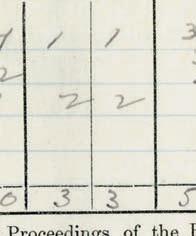 1 1 3
2
2 2
0 3 3 5
Proceedings of the